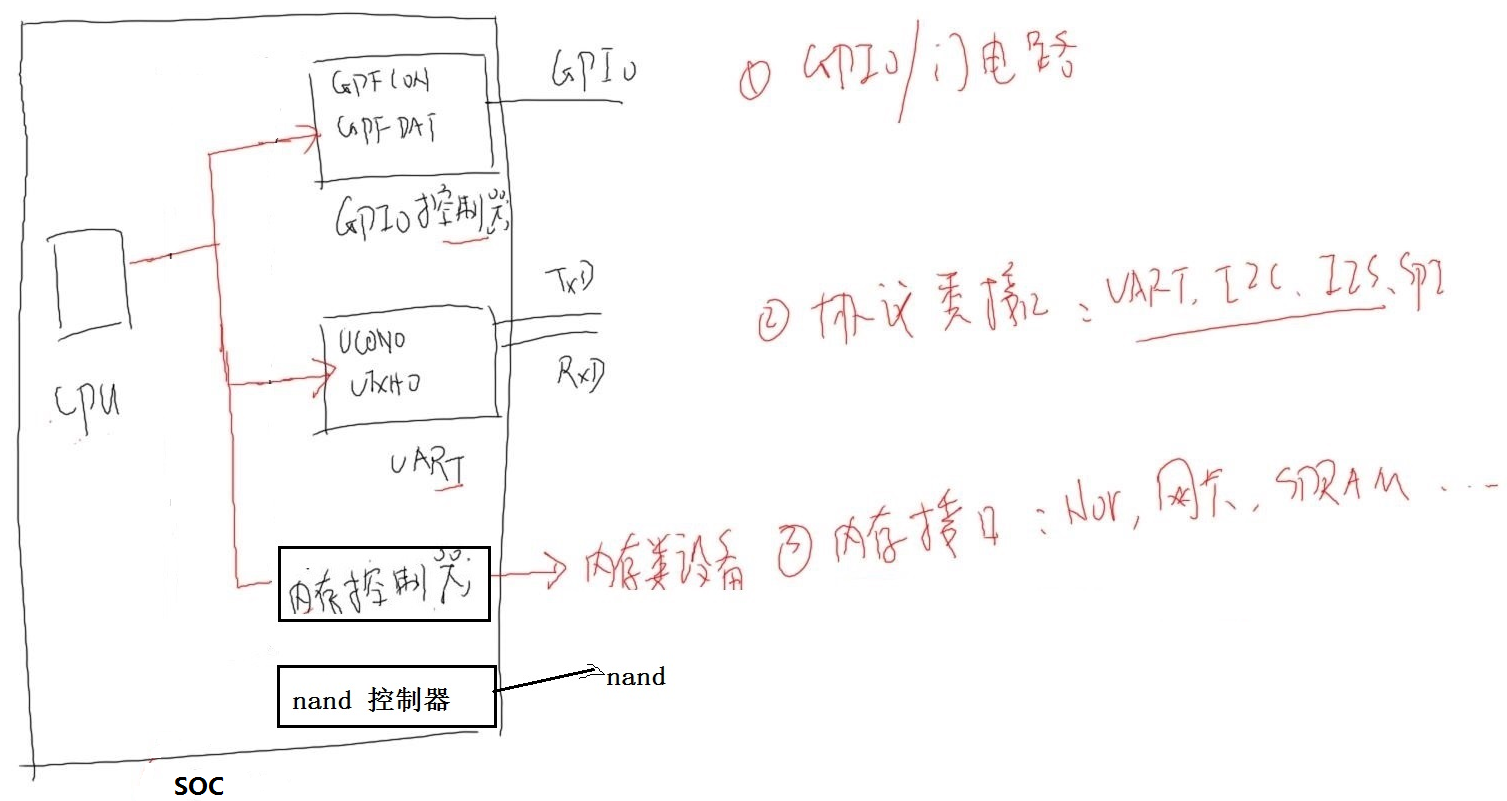 GPFCON
GPFDAT
GPIO控制器
GPIO
① GPIO/门电路
CPU
UCON0
UTXH0
UART
TxD
RxD
② 协议类接口:UART、I2C、I2S、SPI
内存控制器
内存类设备
③ 内存接口:Nor,网卡,SDRAM ....
nand 控制器
nand
SOC